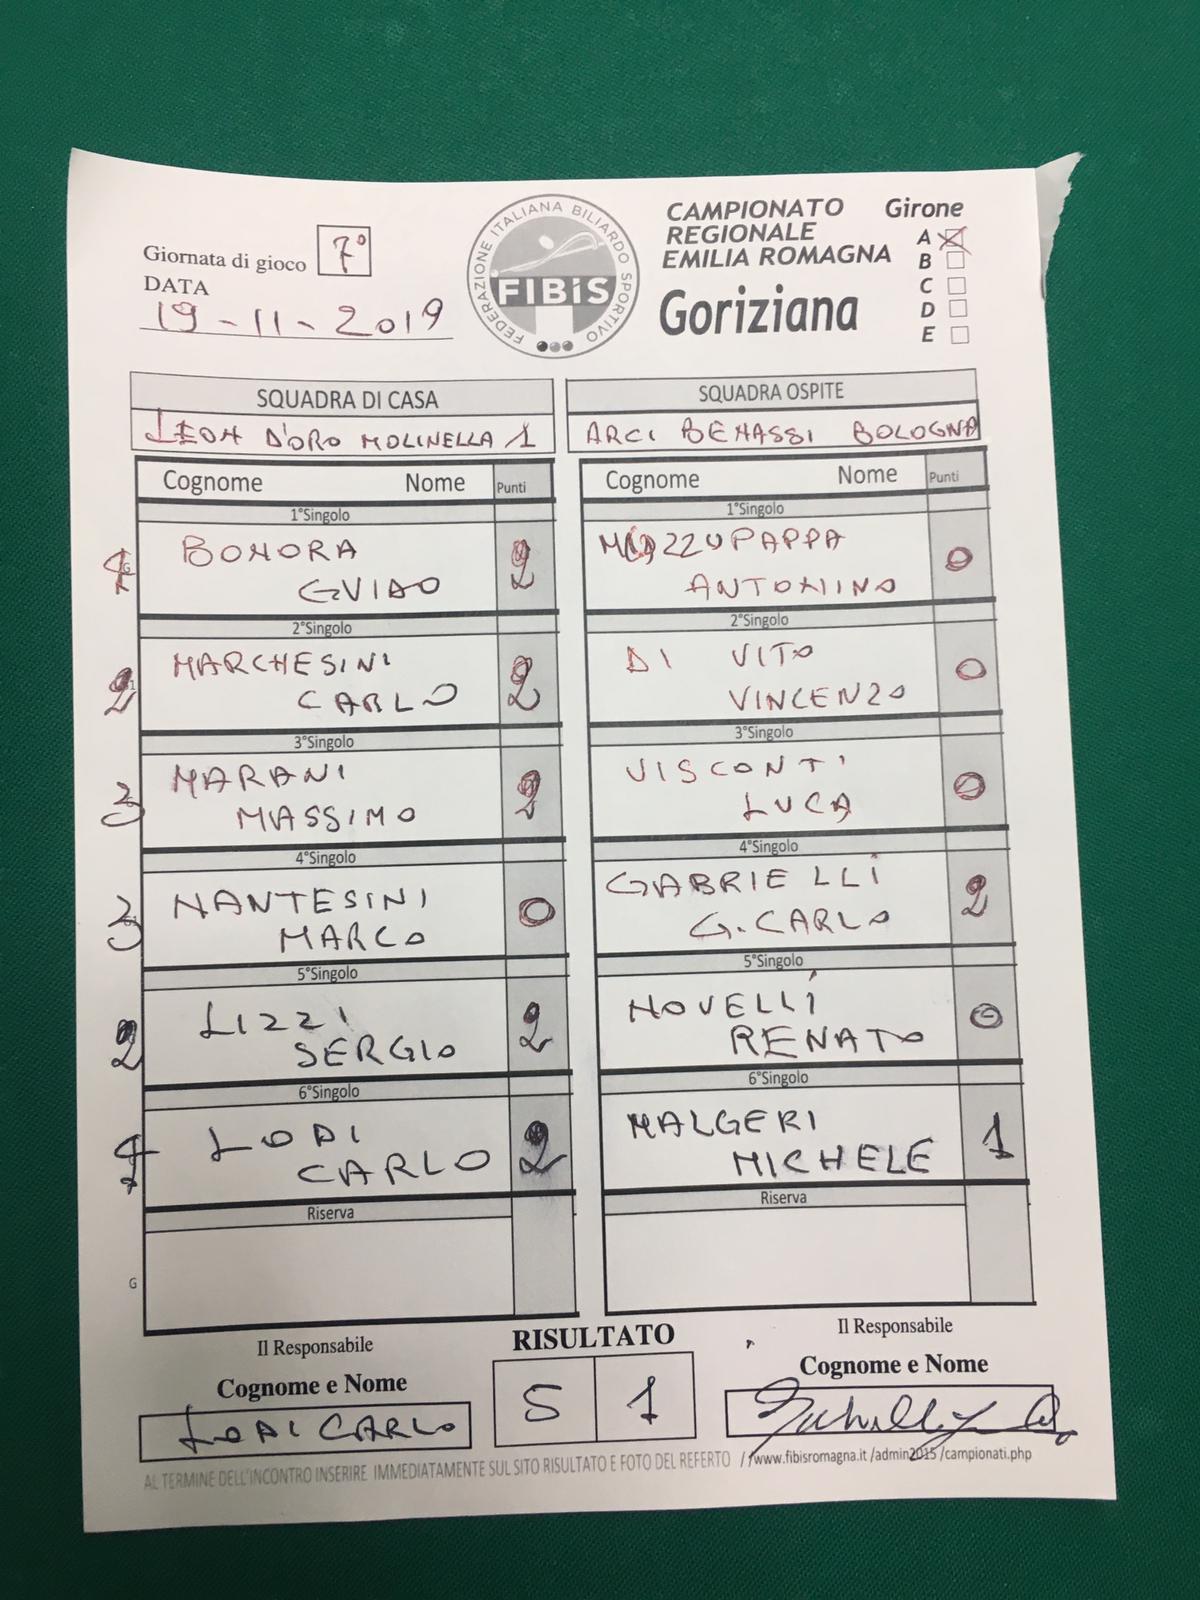 Giornata di gioco 7°
DATA
19-11-2019
FEDERAZIONE ITALIANA BILIARDO SPORTIVO
FIBiS
CAMPIONATO
REGIONALE
EMILIA ROMAGNA
Goriziana
Girone
A
B
C
D
E
SQUADRA DI CASA
LEON D'ORO MOLINELLA 1
SQUADRA OSPITE
ARCI BENASSI BOLOGNA
Cognome Nome Punti
Cognome Nome Punti
1°Singolo
1°Singolo
BONORA
GUIDO
2
MAZZUPAPPA
ANTONINO
0
2°Singolo
2°Singolo
2
MARCHESINI
CARLO
2
DI VITO
VINCENZO
0
3°Singolo
3°Singolo
3
MARANI
MASSIMO
2
VISCONTI
LUCA
0
4°Singolo
4°Singolo
3
NANTESINI
MARCO
0
GABRIELLI
G.CARLO
2
5°Singolo
5°Singolo
2
LIZZI
SERGIO
2
NOVELLI
RENATO
0
6°Singolo
6°Singolo
LODI
CARLO
2
MALGERI
MICHELE
1
Riserva
Riserva
G
Il Responsabile
Cognome e Nome
LODI CARLO
RISULTATO
5 1
Il Responsabile
Cognome e Nome
AL TERMINE DELL'INCONTRO INSERIRE IMMEDIATAMENTE SUL SITO RISULTATO E FOTO DEL REFERTO //www.fibisromagna.it /admin2015 /campionati.php